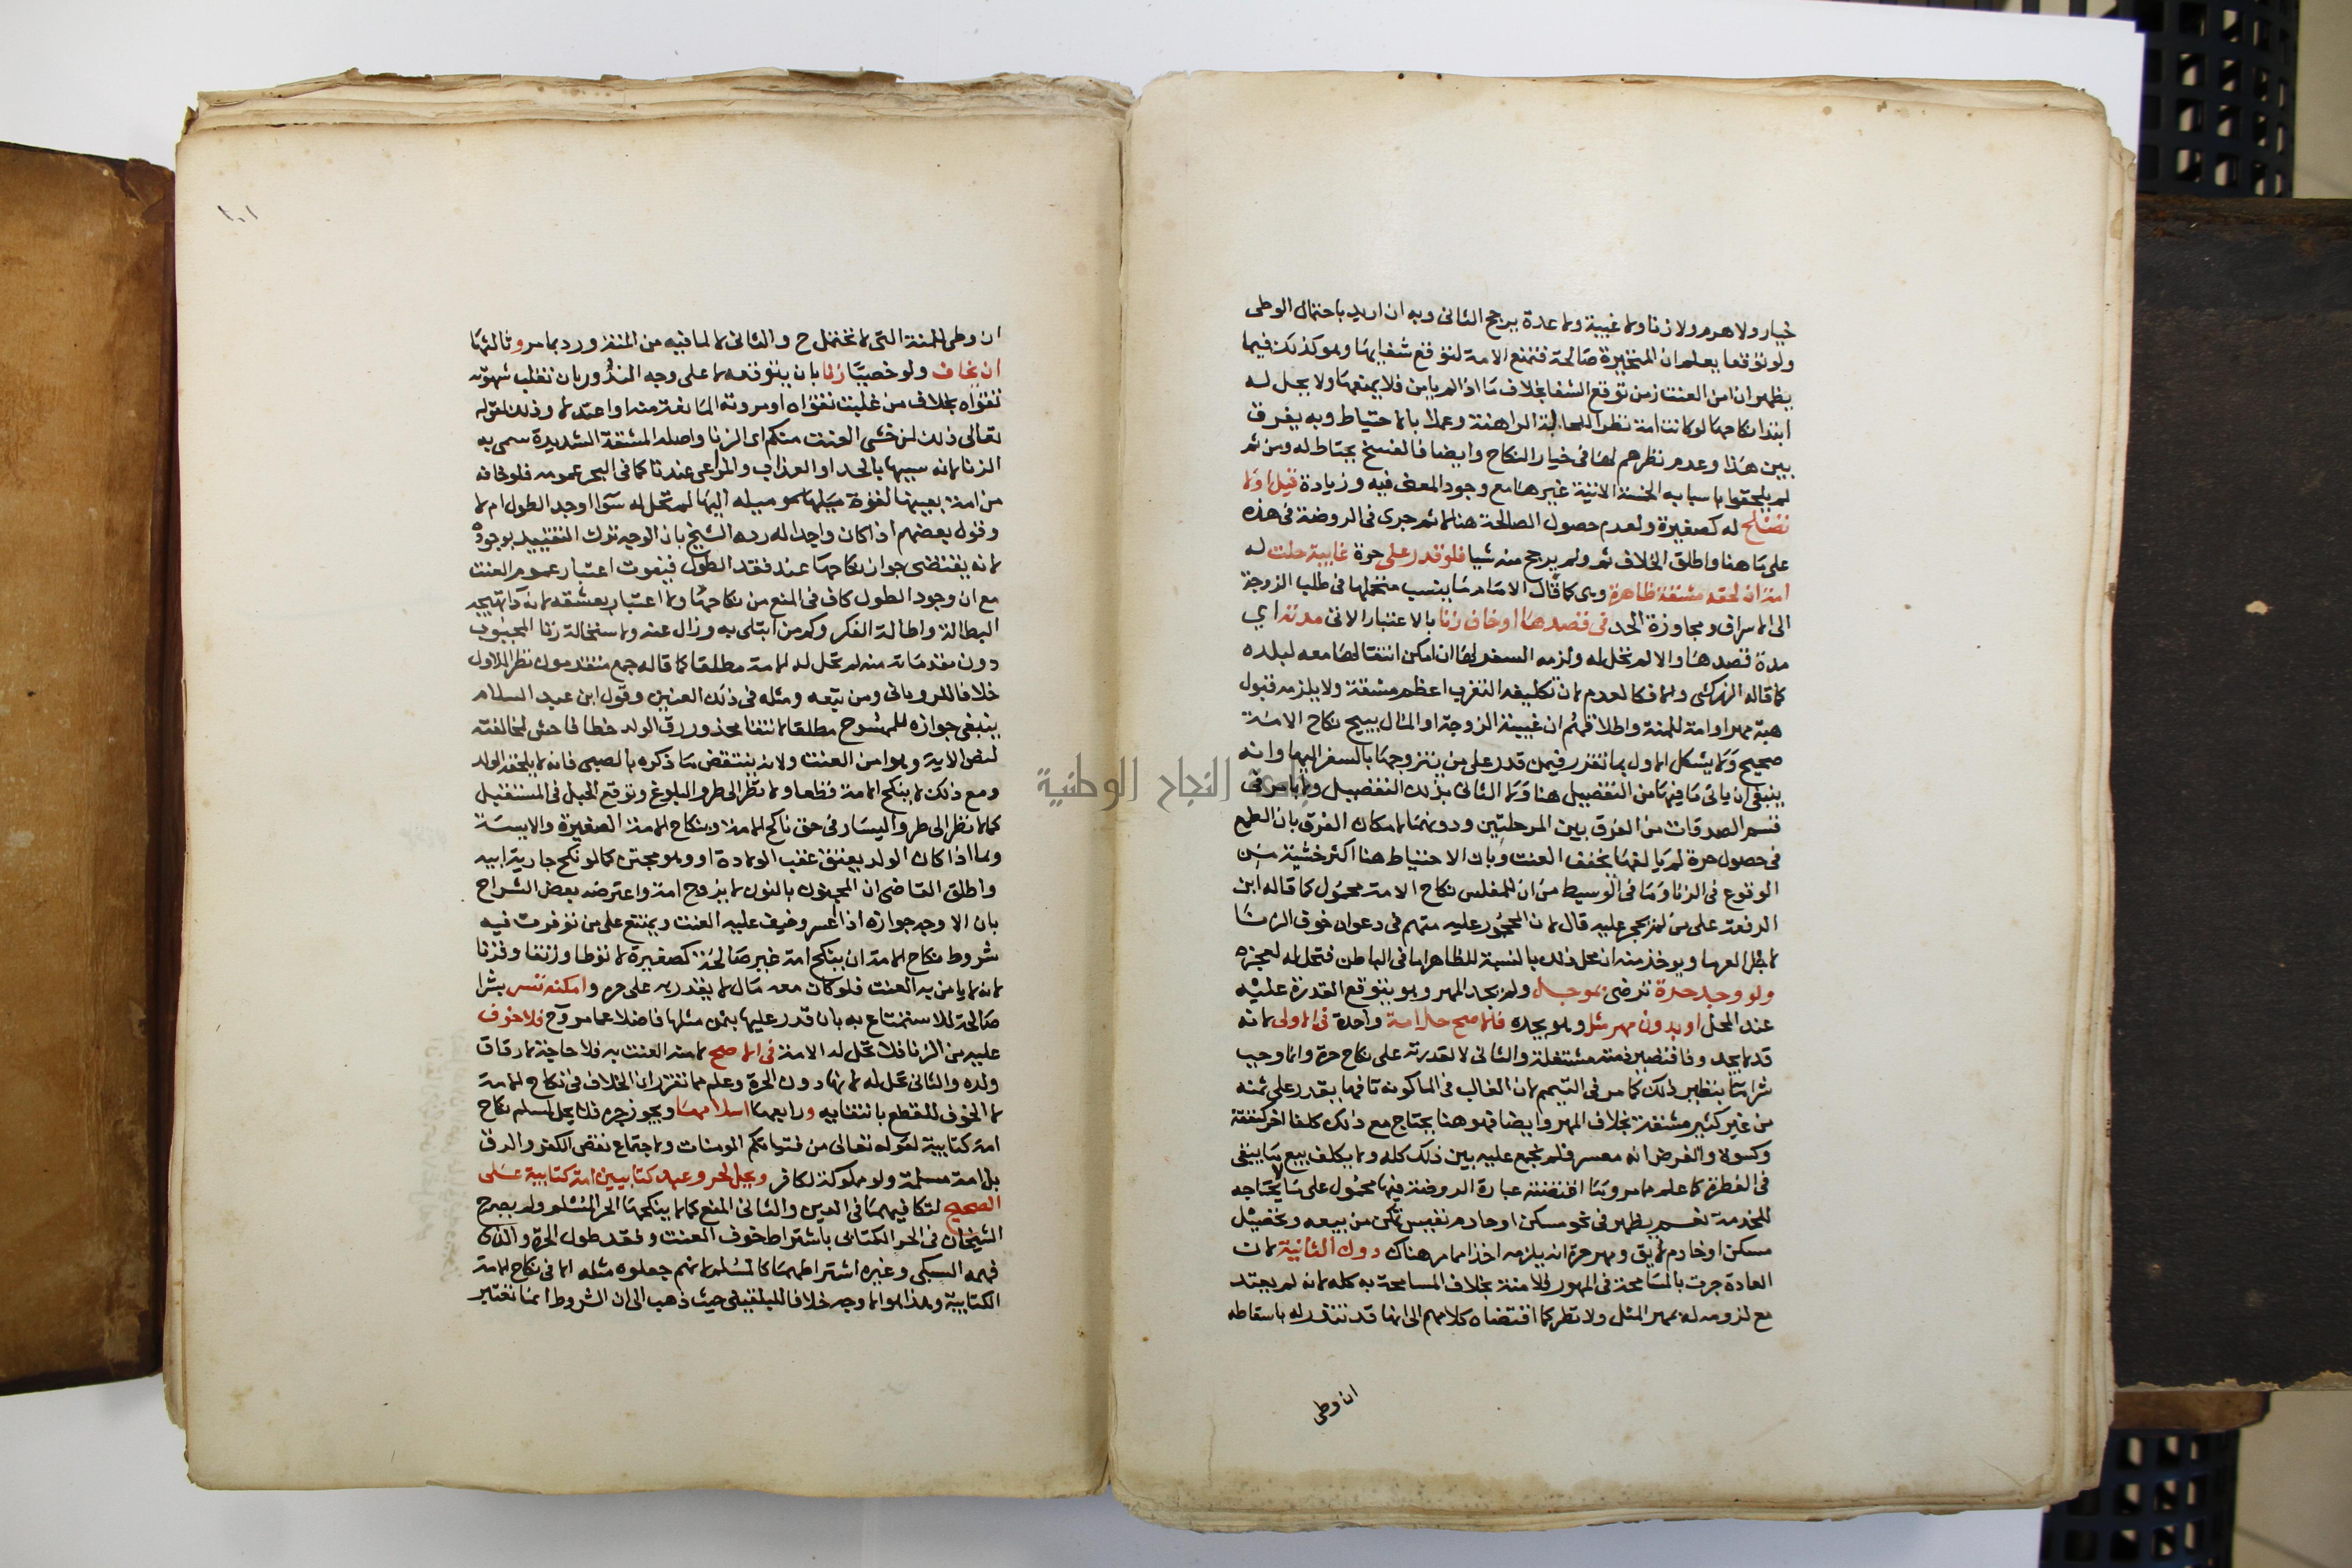 خيار ولا هرم ولا زنا ولا غيبة ولا عدة يرجح الثانى وبه ان اريد باحتمال الوطى
ولو توقعا يعلم ان المتحيرة صالحة فتمنع الامة لتوقع شفايها وهو كذلك فيما
يظهر ان امن العنت زمن توقع الشفا بخلاف ما اذا لم يامن فلا يمنعها ولا يحل له
ابتدا نكاحها لو كانت امة نظرا للحالة الراهنة وعملا بالاحتياط وبه يفرق
بين هذا وعدم نظرهم لها فى خيار النكاح وايضا فالفسخ يحتاط له ومن ثم
لم يلحقوا باسبابه الخمسة الاتية غيرها مع وجود المعنى فيه وزيادة قيل اولا
تصلح له كصغيرة ولعدم حصول الصالحة هنا لما ثم جرى فى الروضة فى هذه
على ما هنا واطلق الخلاف ثم ولم يرجح منه شيا فلو قدر على حرة غايبة حلت له
امة ان لحقه مشقة ظاهرة وهى كما قال الامام ما ينسب متحملها فى طلب الزوجة
الى الاسراف ومجاوزة الحد فى قصدها او خاف زنا بالاعتبار الاتى مدته اي
مدة قصدها والا لم تحل له ولزمه السفر لها ان امكن انتقالها معه لبلده
كما قاله الزركشى والا فكالعدم لان تكليفه التغرب اعظم مشقة ولا يلزمه قبول
هبة مهر او امة للمنة واطلاقهم ان غيبة الزوجة او المال يبيح نكاح الامة
صحيح ولا يشكل الاول بما تقرر فيمن قدر على من يتزوجها بالسفر اليها وانه
ينبغى ان ياتى ما فيها من التفصيل هنا ولا الثانى بذلك التفصيل ولا بما مر فى
قسم الصدقات من الفرق بين المرحلتين ودونهما لامكان الفرق بان الطمع
فى حصول حرة لم يالفها يخفف العنت وبان الاحتياط هنا اكثر خشية من
الوقوع فى الزنا وما فى الوسيط من ان للمفلس نكاح الامة محمول كما قاله ابن
الرفعة على من لم يحجر عليه قال لان المحجور عليه متهم فى دعواه خوف الزنا
لاجل الغرما ويوخذ منه ان محل ذلك بالنسبة للظاهر اما فى الباطن فتحل له لعجزه
ولو وجد حرة ترضى بموجل ولم يجد المهر وهو يتوقع القدرة عليه
عند المحل او بدون مهر مثل وهو يجده فالاصح حل امة واحدة فى الاولى لانه
قد لا يجد وفا فتصير ذمته مشتغلة والثانى لا لقدرته على نكاح حرة وانما وجب
شرا ما بنظير ذلك كما مر فى التيمم لان الغالب فى الما كونه تافها يقدر على ثمنه
من غير كثير مشقة بخلاف المهر وايضا فهو هنا يحتاج مع ذلك كلفا اخر كنفقة
وكسوة والفرض انه معسر فلم يجمع عليه بين ذلك كله ولا يكلف بيع ما يبقى
فى الفطرة كما علم مما مر وما اقتضته عبارة الروضة فيها محمول على ما لا يحتاجه
للخدمة نعم يظهر فى نحو مسكن او خادم نفيس تمكن من بيعه وتحصيل
مسكن او خادم لايق ومهر حرة انه يلزمه اخذا مما مر هناك دون الثانية لان
العادة جرت بالمسامحة فى المهور فلا منة بخلاف المسامحة به كله لانه لم يعتد
مع لزومه له بمهر المثل ولا نظر كما اقتضاه كلامهم الى انها قد تنذر له باسقاطه
ان وطى
١٠١
ان وطى للمنة التى لا تحتمل ح والثانى لا لما فيه من المنة ورد بما مر وثالثها
ان يخاف ولو خصيا زنا بان يتوقعه لا على وجه الندور بان تغلب شهوته
تقواه بخلاف من غلبت تقواه او مروته المانعة منه او اعتدلا وذلك لقوله
تعالى ذلك لمن خشى العنت منكم اى الزنا واصله المشقة الشديدة سمى به
الزنا لانه سببها بالحد او العذاب والمراعى عندنا كما فى البحر عمومه فلو خافه
من امة بعينها لقوة ميله اليها لم تحل له سوا اوجد الطول ام لا
وقول بعضهم اذا كان واجدا له رده الشيخ بان الوجه ترك التقييد بوجوده
لانه يقتضى جواز نكاحها عند فقد الطول فيفوت اعتبار عموم العنت
مع ان وجود الطول كاف فى المنع من نكاحها ولا اعتبار بعشقه لانه دا تهيجه
البطالة واطالة الفكر وكم من ابتلى به وزال عنه ولاستحالة زنا المجبوب
دون مقدماته منه لم تحل له الامة مطلقا كما قاله جمع متقدمون نظرا للاول
خلافا للرويانى ومن تبعه ومثله فى ذلك العنين وقول ابن عبد السلام
ينبغى جوازه للممسوح مطلقا لانتفا محذور رق الولد خطا فاحش لمخالفته
لنص الاية وهو امن العنت ولانه ينتقض ما ذكره بالصبى فانه لا يلحقه الولد
ومع ذلك لا ينكح الامة قطعا ولا نظر الى طرو البلوغ وتوقع الحبل فى المستقبل
كما لا نظر الى طرو اليسار فى حق ناكح الامة وبنكاح الامة الصغيرة والايسة
وبما اذا كان الولد يعتق عقب الولادة او وهو مجتن كما لو نكح جارية ابيه
واطلق القاضى ان المجنون بالنون لا يزوج امة واعترضه بعض الشراح
بان الاوجه جوازه اذا اعسر وخيف عليه العنت ويمتنع على من توفرت فيه
شروط نكاح الامة ان ينكح امة غير صالحة كصغيرة لا توطا ورتقا وقرنا
لانه لا يامن به العنت فلو كان معه مال لا يقدر به على حرة وامكنه تسر بشرا
صالحة للاستمتاع به بان قدر عليها بثمن مثلها فاضلا عما مر وح فلا خوف
عليه من الزنا فلا تحل له الامة فى الاصح لامنه العنت به فلا حاجة لارقاق
ولده والثانى تحل له لانها دون الحرة وعلم مما تقرر ان الخلاف فى نكاح الامة
لا الخوف للقطع بانتفايه ورابعها اسلامها ويجوز جره فلا يحل لمسلم نكاح
امة كتابية لقوله تعالى من فتياتكم المومنات ولاجتماع نقص الكفر والرق
بل امة مسلمة ولو مملوكة لكافر ويحل لحر وعبد كتابيين امة كتابية على
الصحيح لتكافيهما فى الدين والثانى المنع كما لا ينكحها الحر المسلم ولم يصرح
الشيخان فى الحر الكتابى باشتراط خوف العنت وفقد طول الحرة والذى
فهمه السبكى وغيره اشتراطهما كالمسلم لانهم جعلوه مثله الا فى نكاح الامة
الكتابية وهذا هو الاوجه خلافا للبلقينى حيث ذهب الى ان الشروط انما تعتبر
جامعة النجاح الوطنية